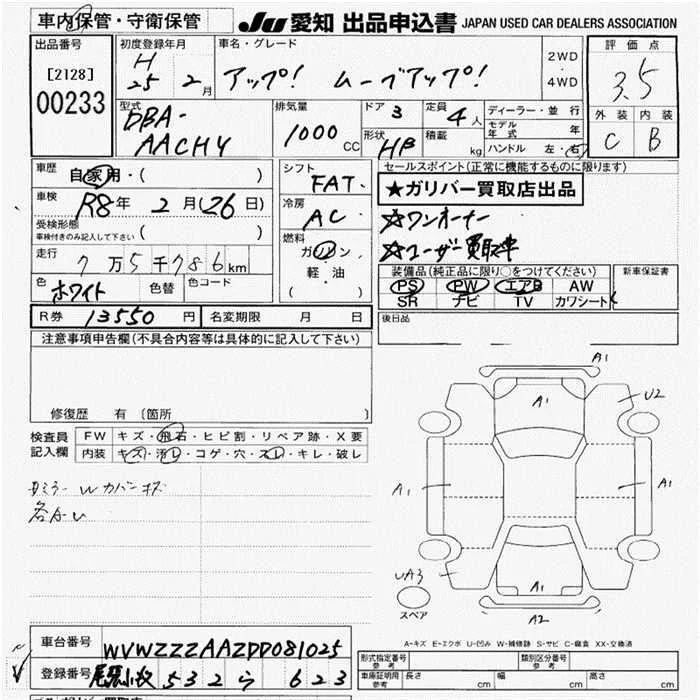 車内保管・守衛保管
JU 愛知 出品申込書 JAPAN USED CAR DEALERS ASSOCIATION
出品番号
[2128]
00233
初度登録年月
H
25 2月
車名・グレード
アップ! ムーブアップ!
2WD
・
4WD
評価点
3.5
外装 内装
C B
型式
DBA-
AACHY
排気量
1000 CC
ドア 3
形状 HB
定員 4人
積載 kg
ディーラー・並行
モデル年式 年
ハンドル 左・右
車歴
自家用・( )
車検
R8年 2月(26日)
受検形態
車検付きのみ記入して下さい ( )
走行
7万5千786km
色
ホワイト
色替
色コード
シフト
FAT.
冷房
AC.
燃料
ガソリン
軽・油
( )
セールスポイント(正常に機能するものに限ります)
★ガリバー買取店出品
☆ワンオーナー
☆ユーザー買取車
装備品(純正品に限り○をつけてください)
PS PW エアB AW
SR ナビ TV カワシート
新車保証書
後日品
R券 13550円
名変期限 月 日
注意事項申告欄(不具合内容等は具体的に記入して下さい)
修復歴 有 〔箇所 〕
検査員
記入欄
FW キズ・飛石・ヒビ割・リペア跡・X要
内装 キズ・汚レ・コゲ・穴・スレ・キレ・破レ
Wカバーキズ
A1
A1
U2
A1
A1
UA3
スペア
A1
A2
A-キズ E-エクボ U-凹み W-補修跡 S-サビ C-腐食 XX-交換済
車台番号
WVWZZZAAZDD081025
登録番号
尾張小牧 532 ら 623
形式指定番号
参考
類別区分番号
参考
車庫証明用
参考
長さ cm 幅 cm 高さ cm